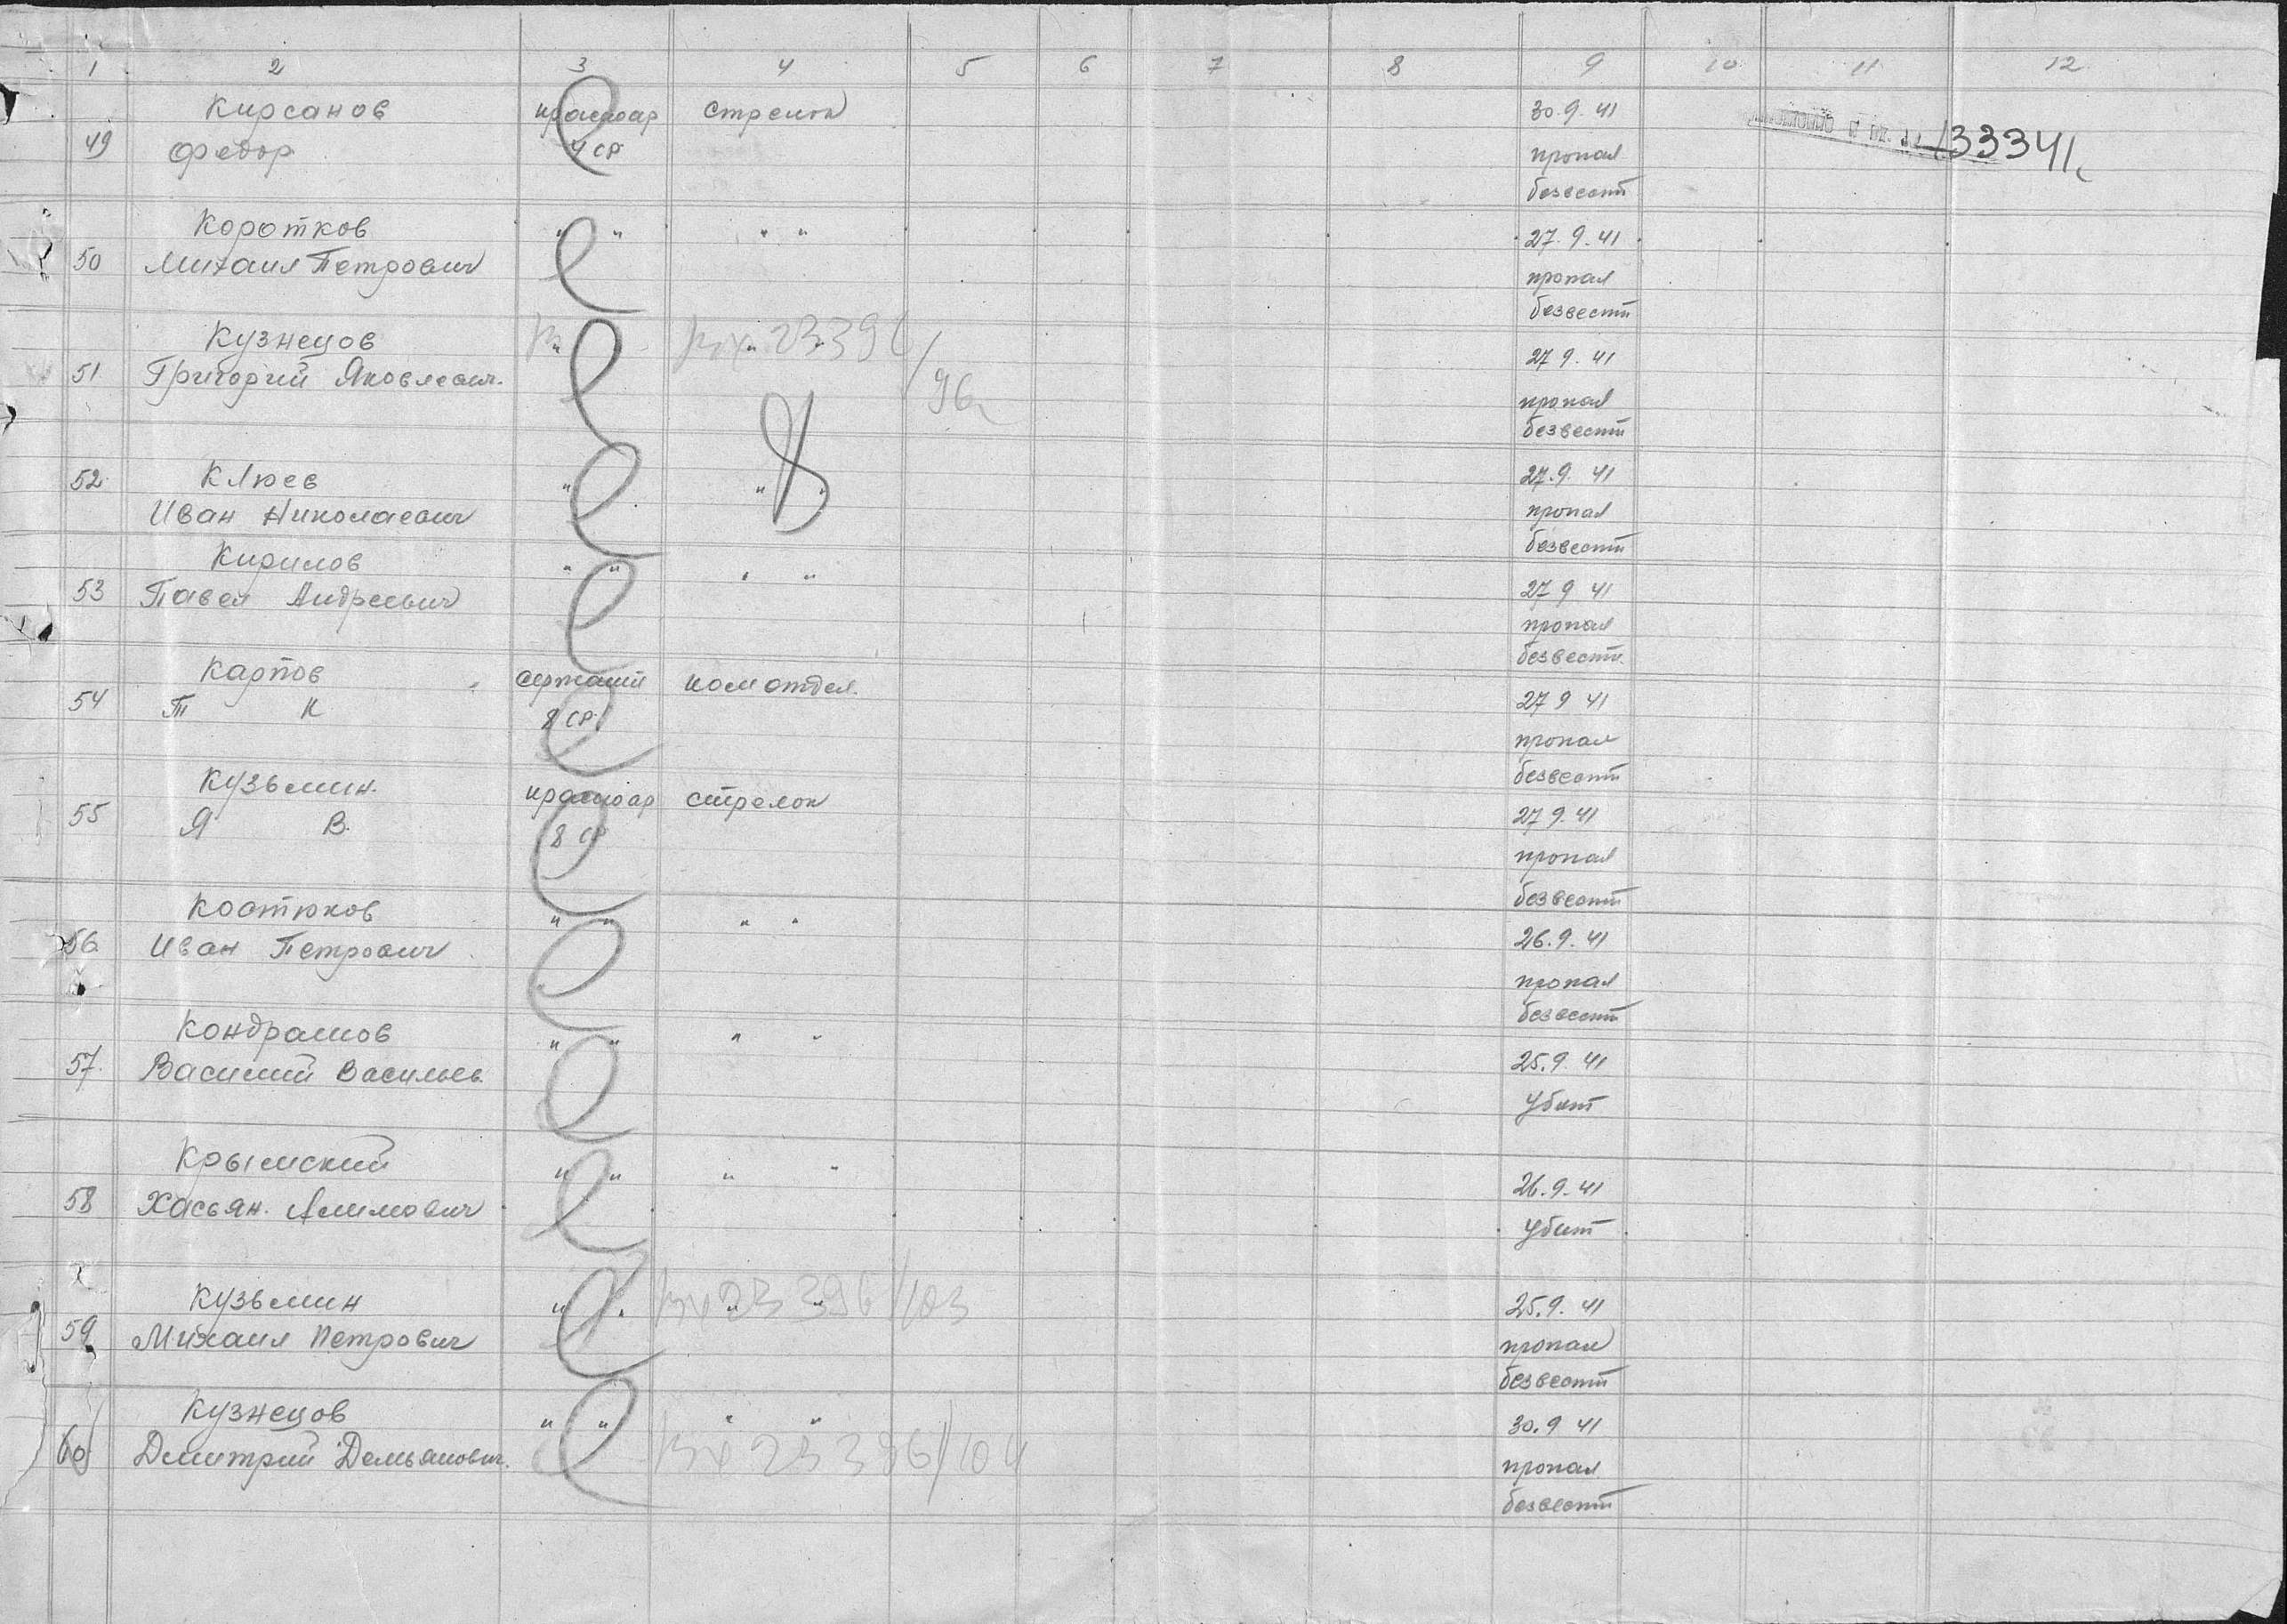 1 2 3 4 5 6 7 8 9 10 11 12
Кирсанов красноар стрелок 30.9.41
49 Федор 4 ср пропал 33341
безвести
Коротков " " " " 27.9.41
50 Михаил Петрович пропал
безвести
Кузнецов " " " 27 9.41
вх 23396/96
51 Григорий Яковлевич. пропал
безвести
52 Клюев " " " 27.9.41
Иван Николаевич пропал
безвести
Кирилов " " " " 27 9 41
53 Павел Андреевич пропал
безвести
Карпов сержант ком отдел. 27 9 41
54 Т К 8 ср. пропал
безвести
Кузьмин. красноар стрелок 27 9.41
55 Я В. 8 ср пропал
безвести
Костюков " " " " 26.9.41
56 Иван Петрович пропал
безвести
Кондрашов " " " " 25.9.41
57. Василий Васильев. Убит
Крымский " " " " 26.9.41
58 Хасьян. Алимович Убит
Кузьмин " " " " 25.9.41
вх 23396/103
59 Михаил Петрович пропал
безвести
Кузнецов " " " " 30.9 41
60 Дмитрий Демьянович. вх 23396/104 пропал
безвести